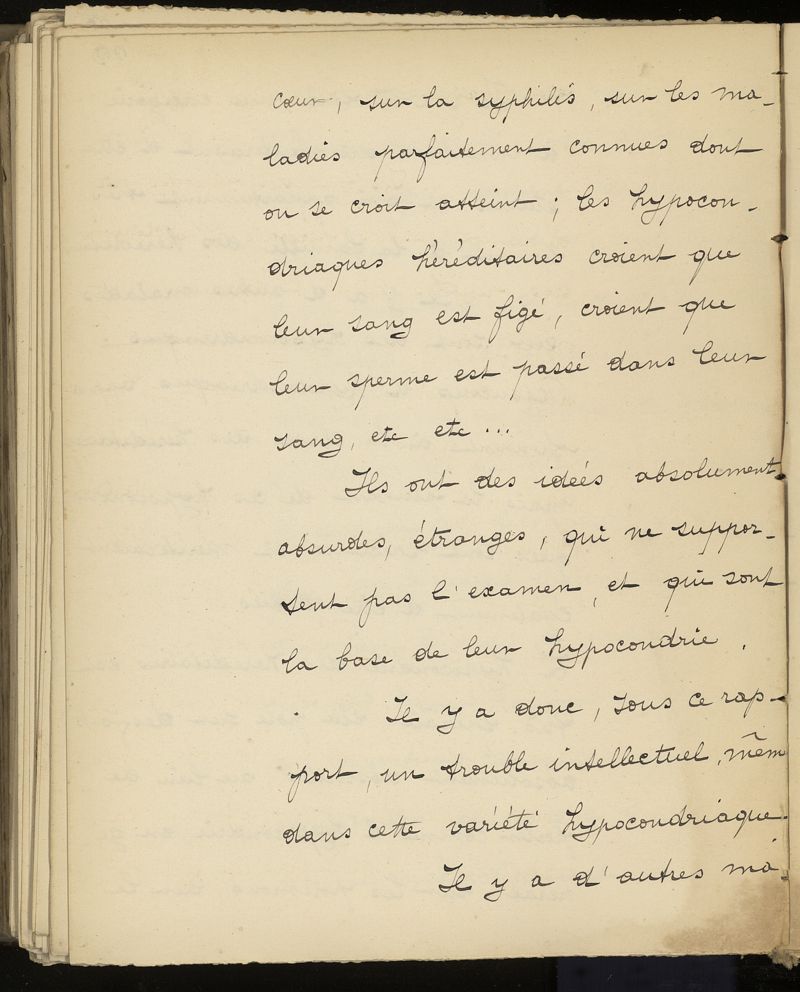 cœur, sur la syphilis, sur les ma-
ladies parfaitement connues dont
on se croit atteint ; les hypocon-
driaques héréditaires croient que
leur sang est figé, croient que
leur sperme est passé dans leur
sang, etc etc ...
Ils ont des idées absolument
absurdes, étranges, qui ne suppor-
tent pas l'examen, et qui sont
la base de leur hypocondrie.
Il y a donc, sous ce rap-
port, un trouble intellectuel, mêm
dans cette variété hypocondriaque.
Il y a d'autres ma-